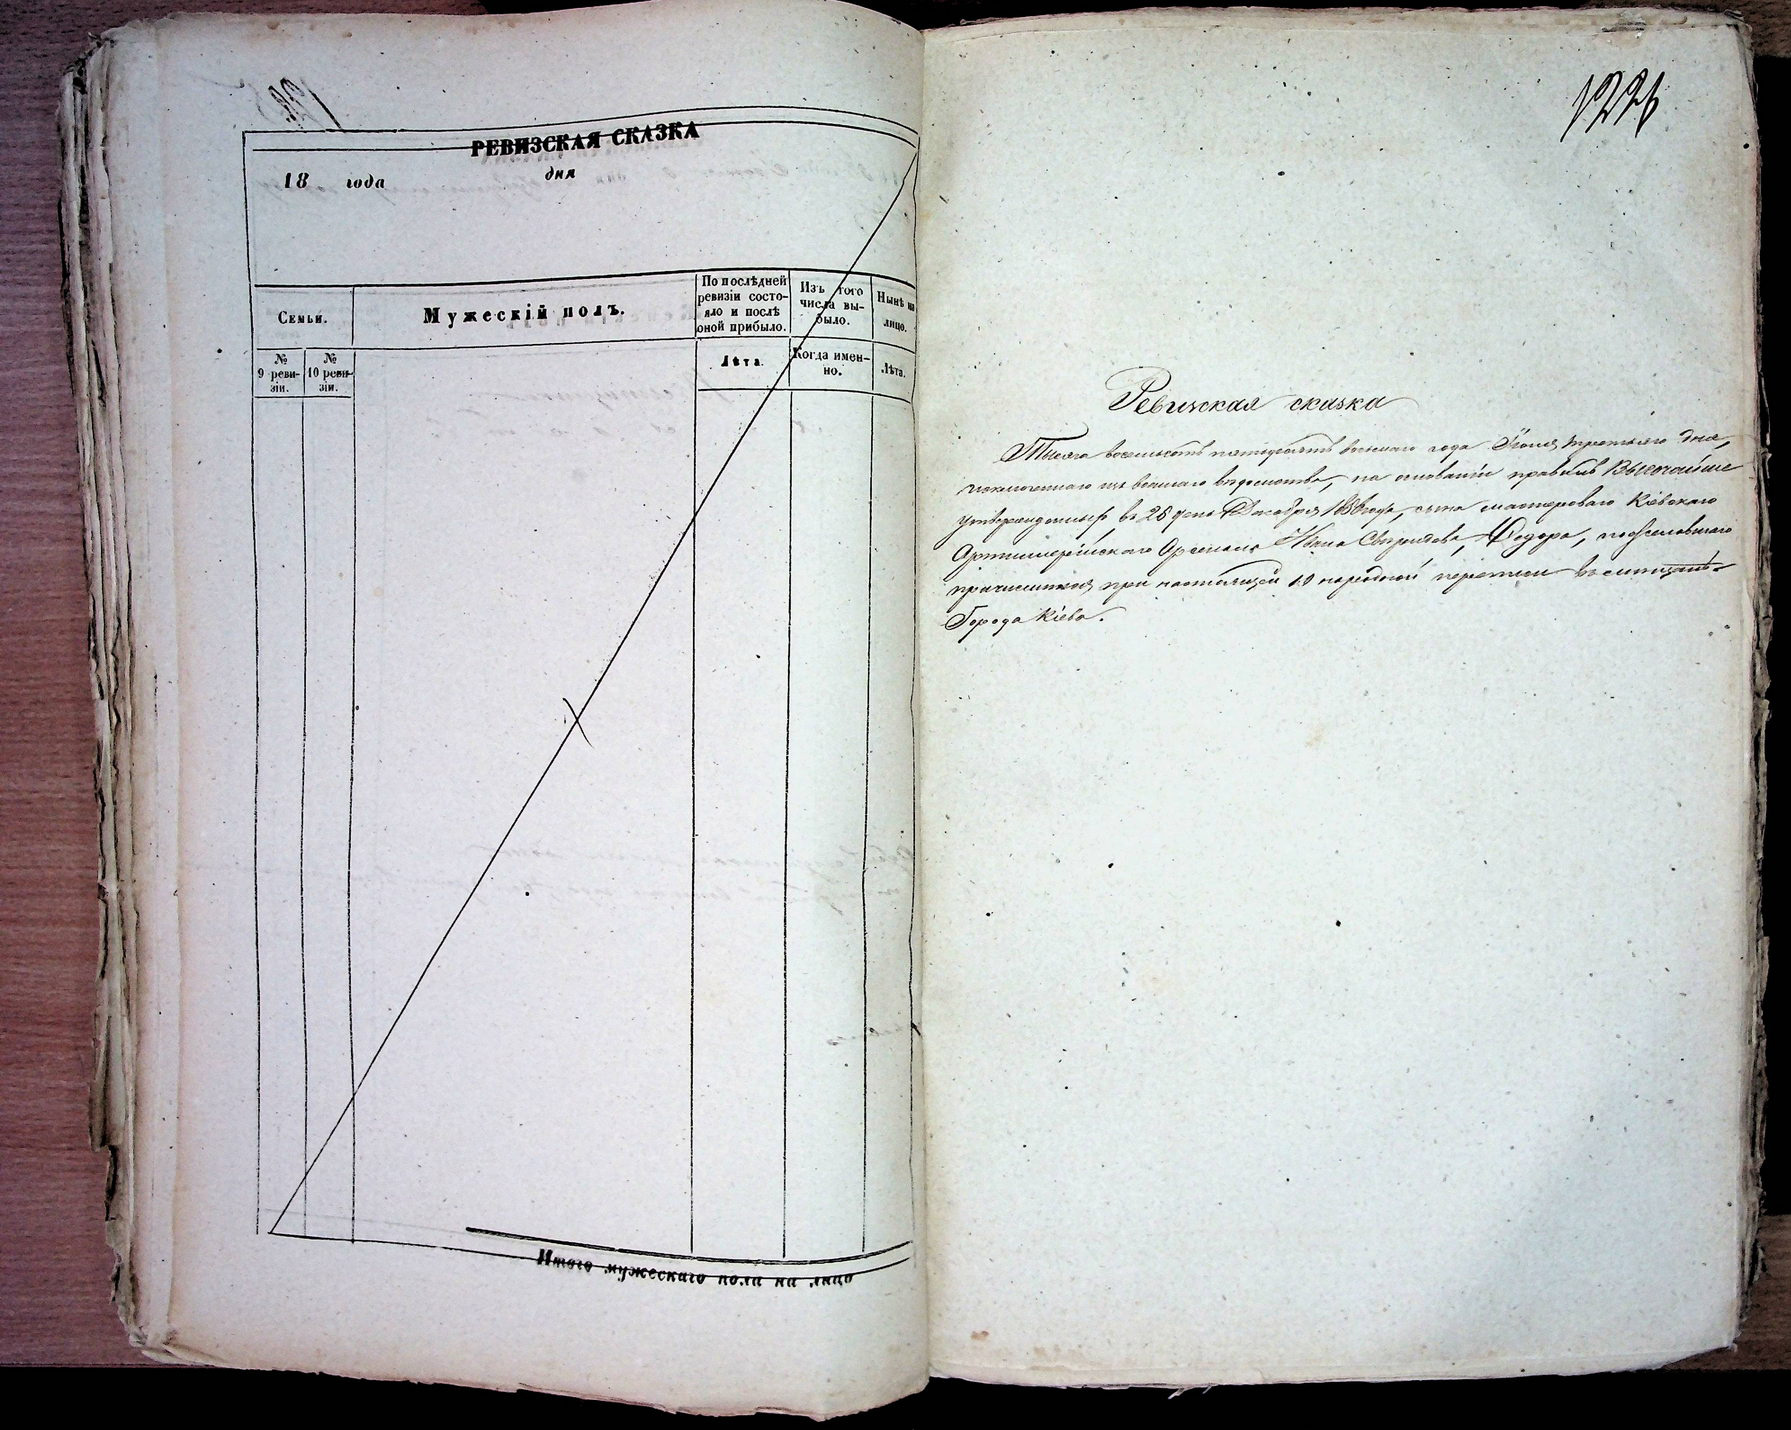 РЕВИЗСКАЯ СКАЗКА
18 года дня
Семьи.
Мужескій полъ.
По послѣдней ревизіи состояло и послѣ оной прибыло.
Изъ того числа выбыло.
Нынѣ на лицо.
№ 9 ревизіи.
№ 10 ревизіи.
Лѣта.
Когда именно.
Лѣта.
Итого мужескаго пола на лицо
1226
Ревизская сказка
Тысяча восемьсотъ пятьдесятъ восьмаго года Іюня третьяго дня,
исключеннаго изъ военнаго вѣдомства, на основаніи правилъ Высочайше
утвержденныхъ въ 25 день Декабря года, сына мастероваго Кіевскаго
Артиллерійскаго Арсенала Ивана Свиридова, Федора, пожелавшаго
причислиться, при настоящей 10 народной переписи въ мѣщане
Города Кіева.